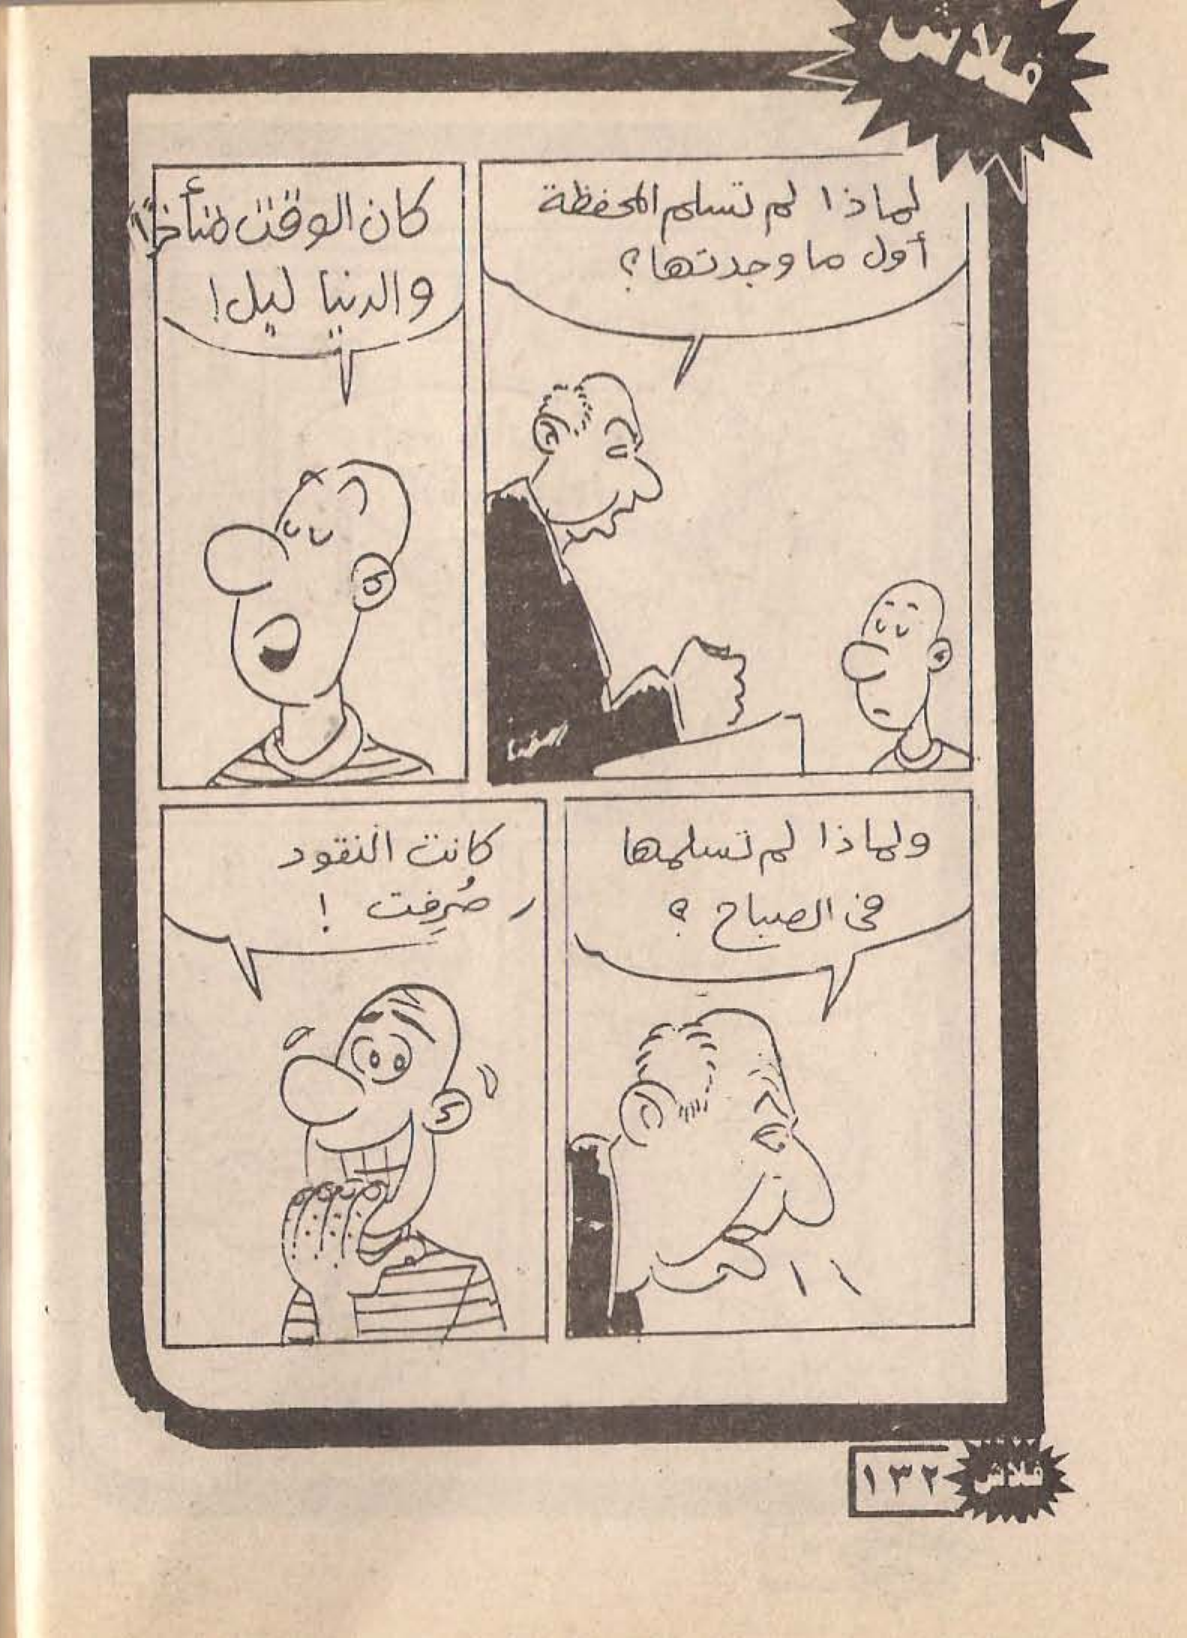 فلاش
لماذا لم تسلم المحفظة
أول ما وجدتها؟
كان الوقت متأخرًا
والدنيا ليل!
ولماذا لم تسلمها
فى الصباح ؟
كانت النقود
صُرِفت !
١٣٢
فلاش